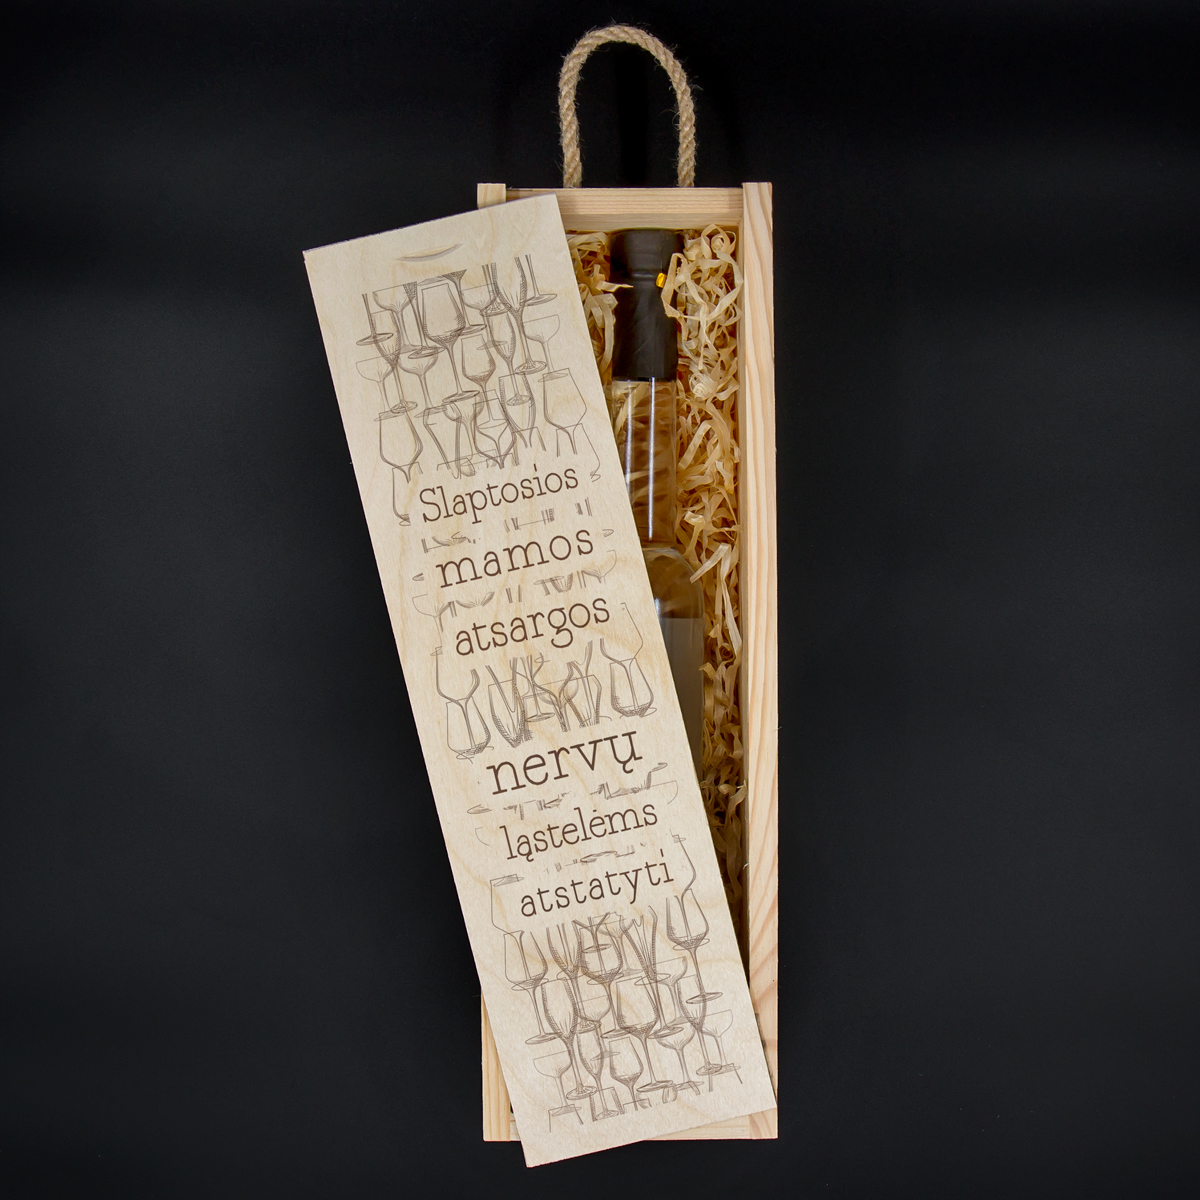 Slaptosios
mamos
atsargos
nervų
ląstelėms
atstatyti